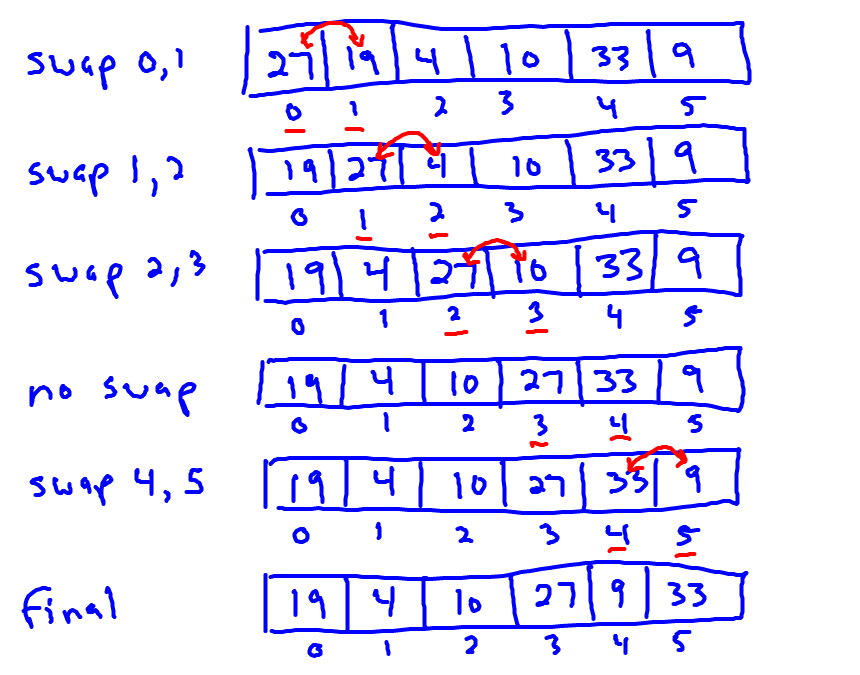 swap 0,1 27 19 4 10 33 9
0 1 2 3 4 5
swap 1,2 19 27 4 10 33 9
0 1 2 3 4 5
swap 2,3 19 4 27 10 33 9
0 1 2 3 4 5
no swap 19 4 10 27 33 9
0 1 2 3 4 5
swap 4,5 19 4 10 27 33 9
0 1 2 3 4 5
final 19 4 10 27 9 33
0 1 2 3 4 5